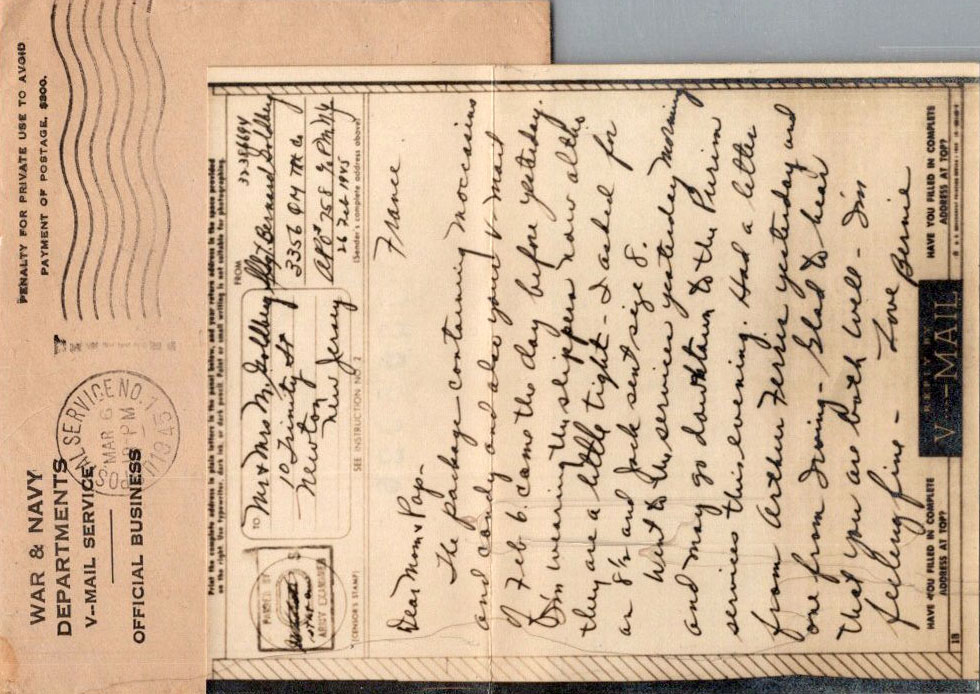 PENALTY FOR PRIVATE USE TO AVOID
PAYMENT OF POSTAGE, $300.
WAR & NAVY
DEPARTMENTS
V-MAIL SERVICE
OFFICIAL BUSINESS
SERVICE NO. 1
MAR 6
PM
1945
Print the complete address in plain letters in the panel below, and your return address in the space provided
on the right. Use typewriter, dark ink, or dark pencil. Faint or small writing is not suitable for photographing.
TO
Mr & Mrs M. Goldberg
10 Trinity St
Newton
New Jersey
FROM
S/Sgt Bernard Goldberg
3356 QM Trk Co
APO 758 % PM NY
26 Feb 1945
(Sender's complete address above)
PASSED BY
ARMY EXAMINER
(CENSOR'S STAMP)
SEE INSTRUCTION NO. 2
France
Dear Mom & Pop-
The package containing moccasins
and candy and also your V-mail
of Feb 6. came the day before yesterday.
I'm wearing the slippers now altho
they are a little tight - I asked for
an 8½ and Jack sent size 8.
Went to the services yesterday morning
and may go downtown to the Purim
services this evening. Had a letter
from Arthur Ferris yesterday and
one from Irving - Glad to hear
that you are both well - I'm
feeling fine -
Love Bernie
HAVE YOU FILLED IN COMPLETE
ADDRESS AT TOP?
REPLY BY
V-MAIL
HAVE YOU FILLED IN COMPLETE
ADDRESS AT TOP?